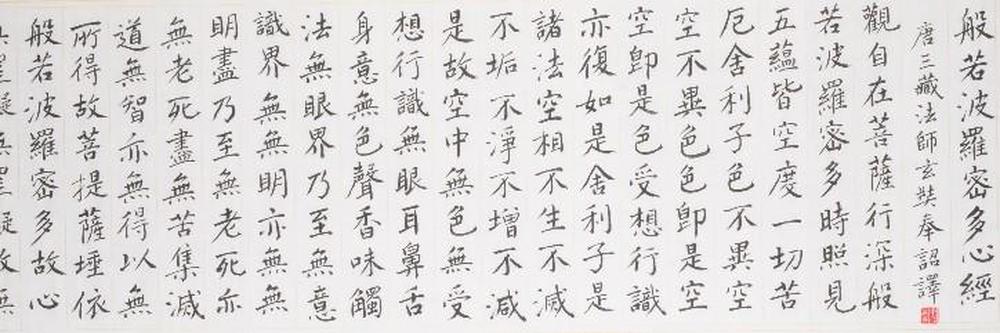 般若波羅密多心經
唐三藏法師玄奘奉詔譯
觀自在菩薩行深般
若波羅密多時照見
五蘊皆空度一切苦
厄舍利子色不異空
空不異色色即是空
空即是色受想行識
亦復如是舍利子是
諸法空相不生不滅
不垢不淨不增不減
是故空中無色無受
想行識無眼耳鼻舌
身意無色聲香味觸
法無眼界乃至無意
識界無無明亦無無
明盡乃至無老死亦
無老死盡無苦集滅
道無智亦無得以無
所得故菩提薩埵依
般若波羅密多故心